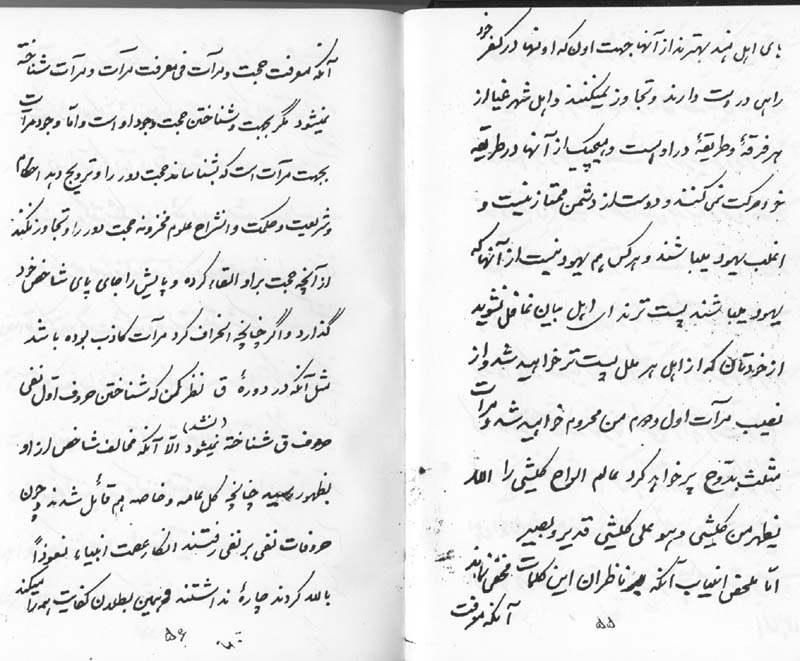 بای اهل هند بهترند از آنها جهت اون که اونها در کفر خود
راهی در دست دارند و تجاوز نمیکنند و اهل شهر خیار از
هر فرقهٔ و طریقهٔ در او هست و هیچیک از آنها در طریقهٔ
خود حرکت نمی کنند و دوست از دشمن ممتاز نیست و
اغلب یهود میباشند و هر کس هم یهود نیست از آنها که
یهود میباشند پست ترند ای اهل بیان غافل نشوید
از خودتان که از اهل هر ملل پست تر خواهید شد و از
نصیب مرآت اول و دوم من محروم خواهید شد و مرآت
مثلث بتدوح پر خواهد کرد عالم الواح کلشیئی را الله
یظهر من کلشیئی و هو علی کلشیئی قدیر و بصیر
آنکه بر ناظران این کلمات مخفی نماند
آنکه معرفت
۵۵
آنکه معرفت حجت و مرآت فی معرفت مرآت و مرآت شناخته
نمیشود مگر بحجت و شناختن حجت وجود او است و اما وجود مرآت
بجهت مرآت است که بشناساند حجت دور را و ترویج دهد احکام
و شریعت و حکمت و انشراح علوم مخزونه حجت دور را و تجاوز نکند
از آنچه حجت بر او القاء کرده و پایش را جای پای شاخص خود
گذارد و اگر چنانچه انحراف کرد مرآت کاذب بوده باشد
مثل آنکه در دورهٔ ق نظر کمن که شناختن حروف اول نفی
حروف ق شناخته نمیشود (نشد) الا آنکه مخالف شاخص از او
بظهور رسید چنانچه کل عامه و خاصه هم قائل شدند و چون
حروفات نفی بر نفی رفتند انکار عصمت انبیاء نعوذاً
بالله کردند چارهٔ نداشتند و همین بطلان کفایت همه را میکند
۵۶